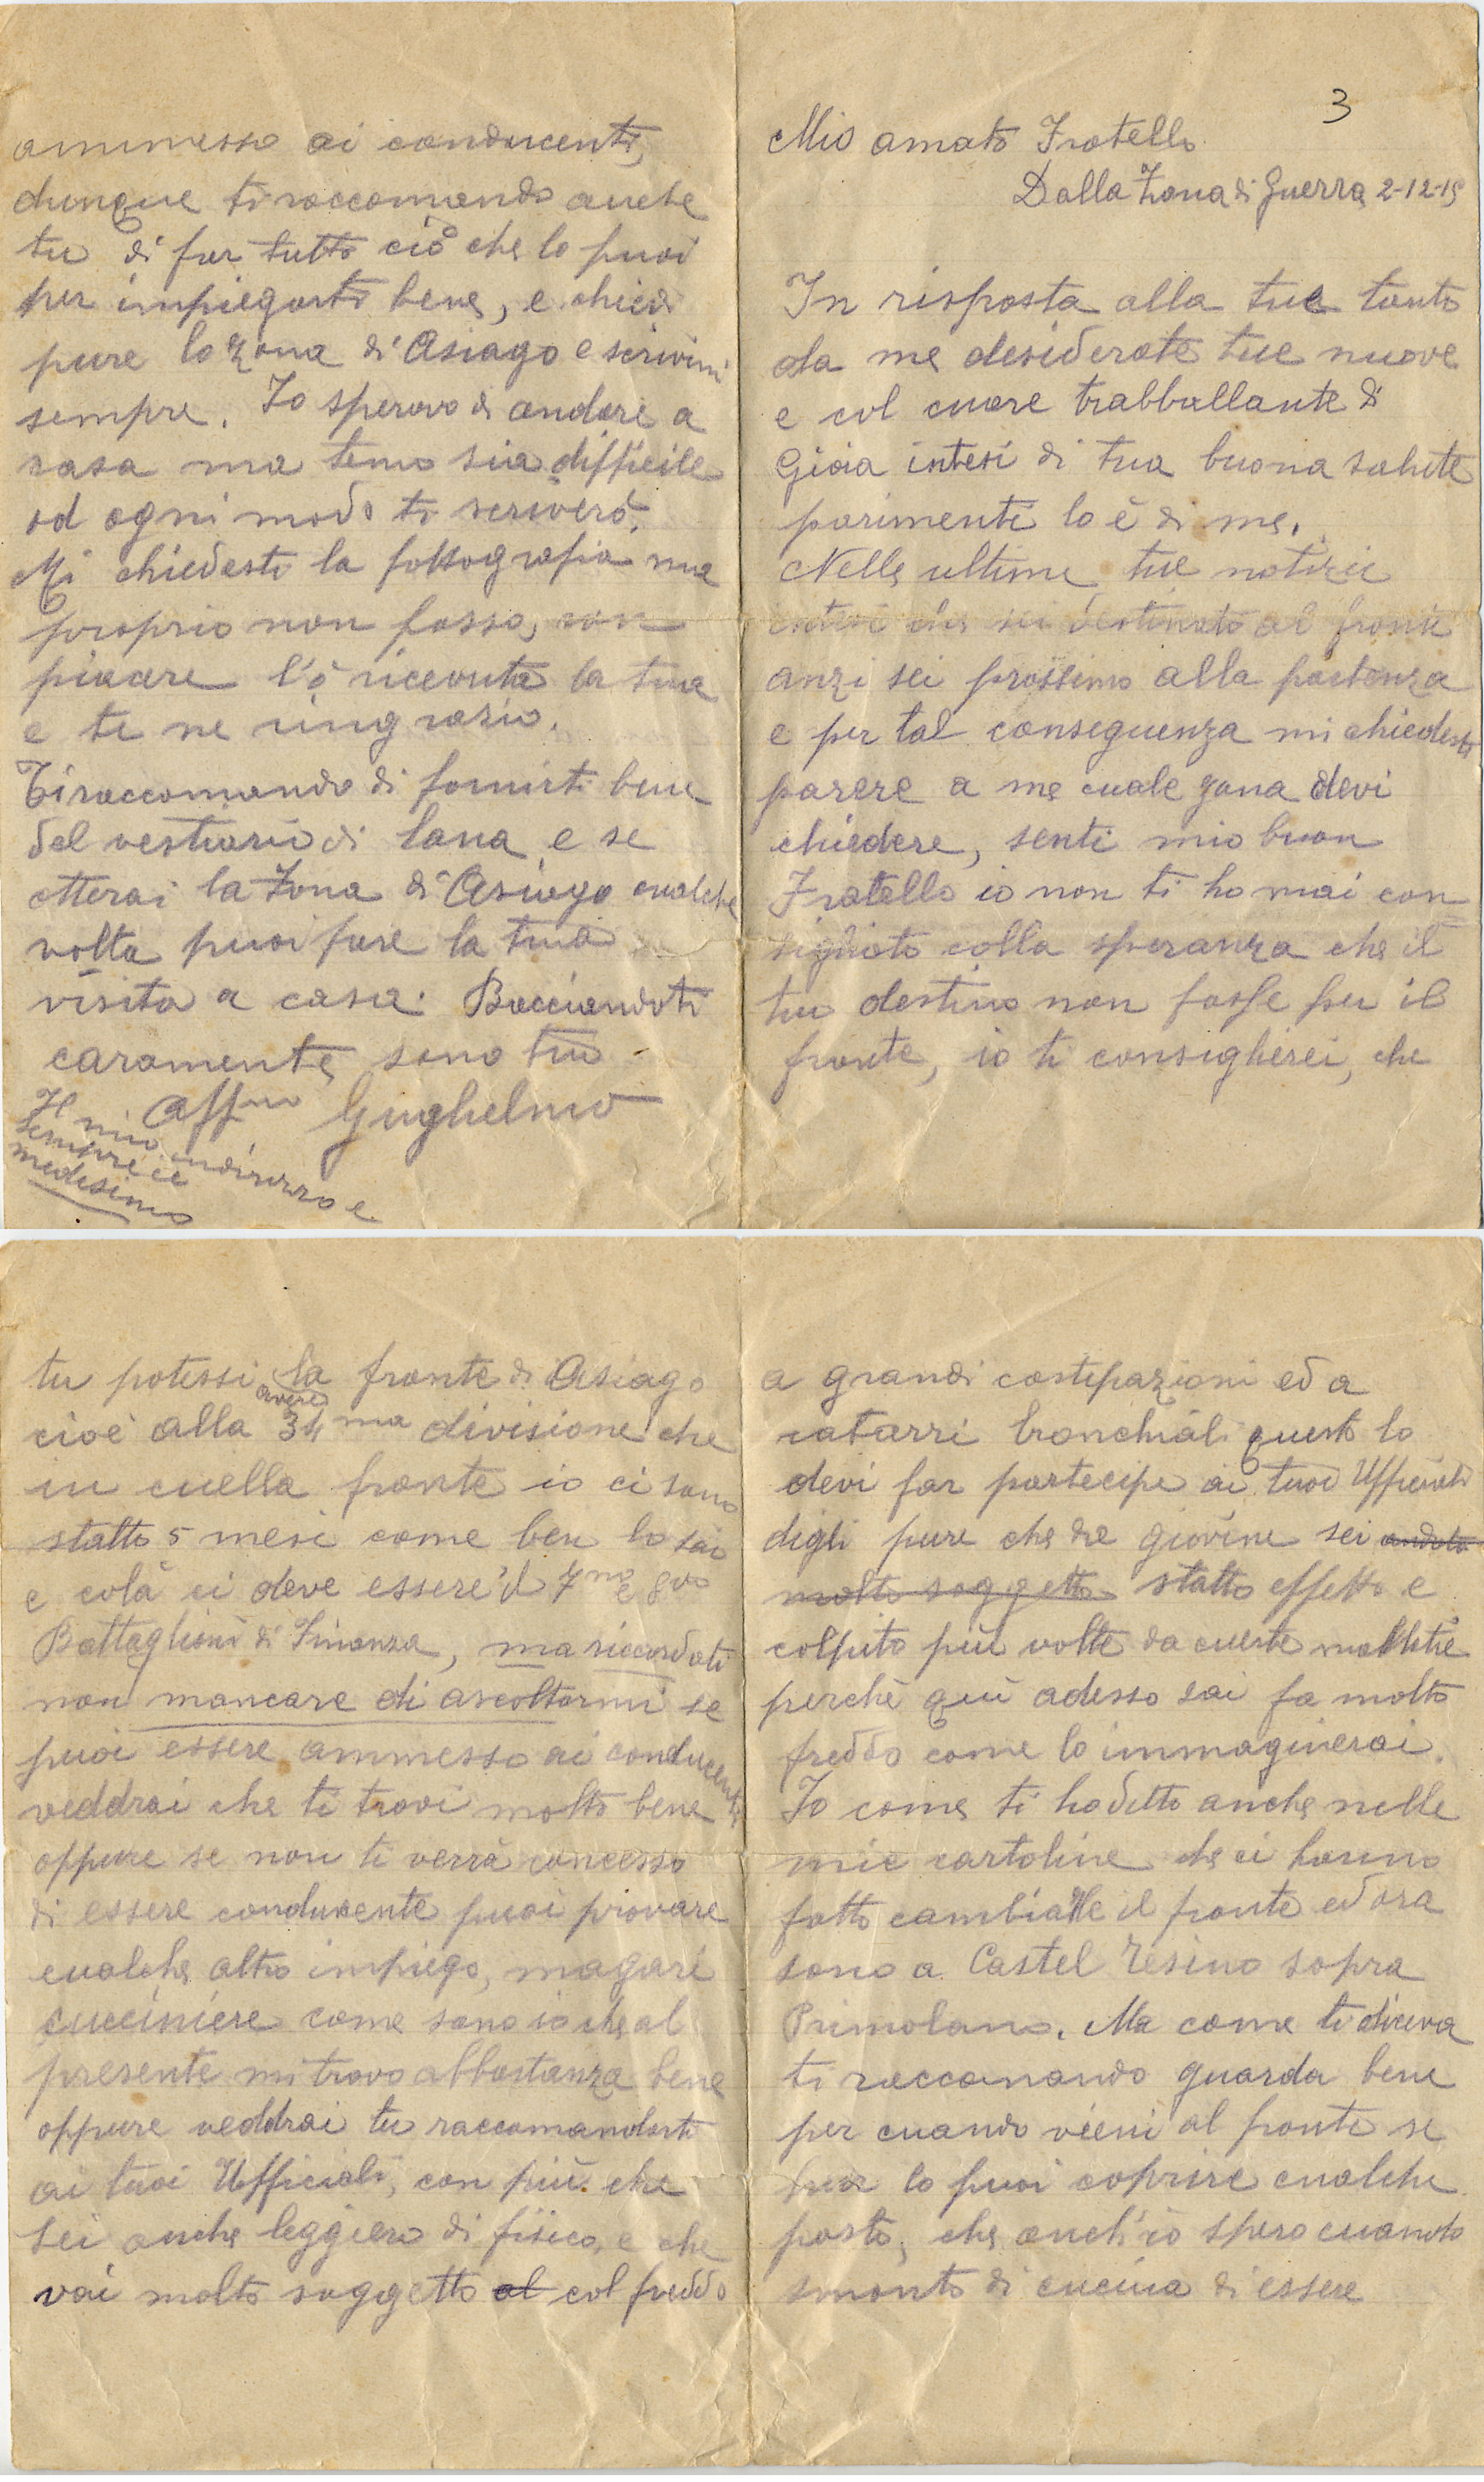 3
Mio amato Fratello
Dalla Zona di Guerra 2-12-15
In risposta alla tue tanto
da me desiderate tue nuove
e col cuore traballante di
Gioia intesi di tua buona salute
parimenti lo è di me.
Nelle ultime tue notizie
intesi che sei destinato al fronte
anzi sei prossimo alla partenza
e per tal conseguenza mi chiedesti
parere a me cuale zona devi
chiedere, senti mio buon
Fratello io non ti ho mai con
sigliato colla speranza che il
tuo destino non fosse per il
fronte, io ti consiglierei, che
tu potessi avere la fronte di Asiago
cioè alla 34ma divisione che
in cuella fronte io ci sono
statto 5 mesi come ben lo sai
e colà ci deve essere il 7mo e 8vo
Battaglioni di Finanza, ma riccordati
non mancare di ascoltarmi se
puoi essere ammesso ai conducenti
veddrai che ti trovi molto bene
oppure se non ti verrà concesso
di essere conducente puoi provare
cualche altro impiego, magari
cucciniere come sono io che al
presente mi trovo abbastanza bene
oppure veddrai tu raccomandarti
ai tuoi Ufficiali, con più che
sei anche leggiero di fisico, e che
vai molto soggetto al col freddo
a grandi costipazioni ed a
catarri bronchiali questo lo
devi far partecipe ai tuoi Ufficiali
digli pure che de giovine sei andato
molto soggetto statto effetto e
colpito più volte da cueste mallatie
perchè quì adesso sai fa molto
freddo come lo immaginerai.
Io come ti ho detto anche nelle
mie cartoline che ci hanno
fatto cambiare il fronte ed ora
sono a Castel Tesino sopra
Primolano. Ma come ti diceva
ti raccomando guarda bene
per cuando vieni al fronte se
pur lo puoi coprire cualche
posto, che anch'io spero cuando
smonto di cucina di essere
ammesso ai conducenti,
dunque ti raccomando anche
tu di far tutto ciò che lo puoi
per impiegarti bene, e chiedi
pure la zona di Asiago e scrivimi
sempre. Io speravo di andare a
casa ma temo sia difficile
ad ogni modo ti scriverò.
Mi chiedesti la fottografia ma
proprio non posso, con
piacere l'ò ricevuta la tua
e te ne ringrazio.
Ti raccomando di fornirti bene
del vestiario di lana e se
otterai la Zona di Asiago cualche
volta puoi fare la tua
visita a casa. Bacciandoti
caramente sono tuo
Affmo Guglielmo
Il mio indirizzo e
sempre il
medesimo